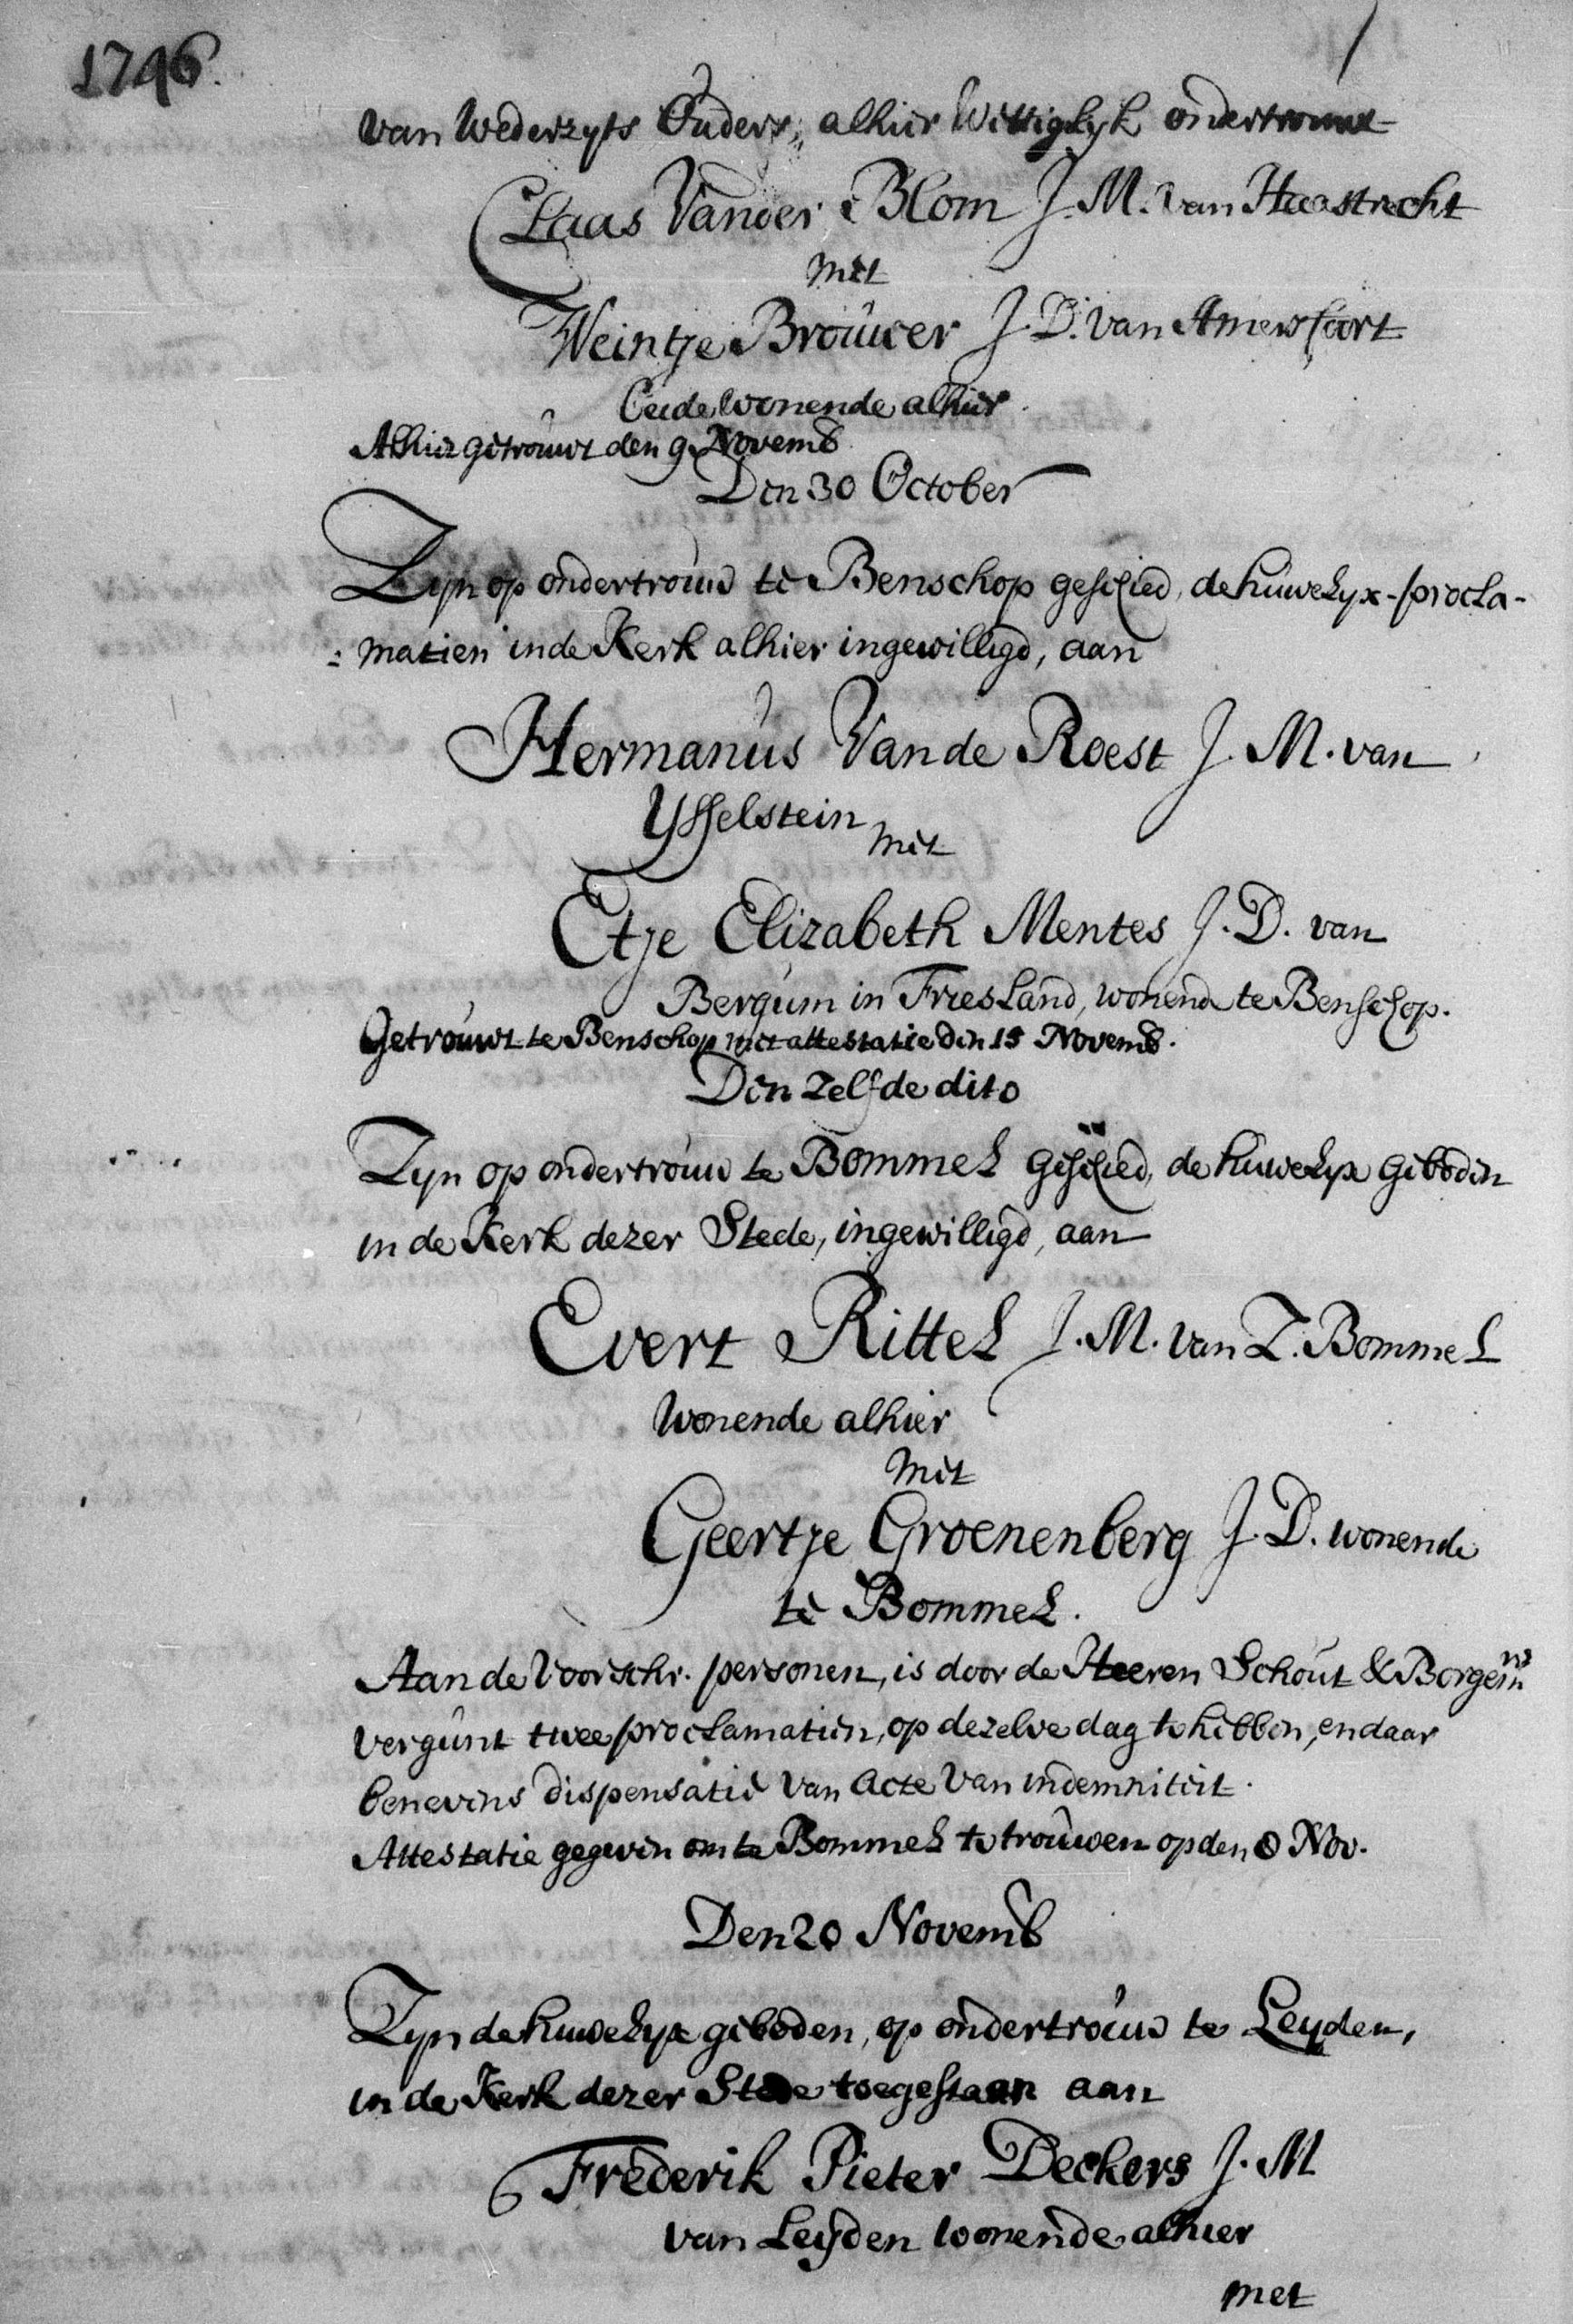 1746.
van Wederzyts Ouders, alhier Wettiglyk ondertrouwt
Claas Vander Blom J. M. van Haastrecht
met
Weintje Brouwer J. D. van Amersfoort
Beide wonende alhier.
Alhier getrouwt den 9 Novemb
Den 30 October
Zyn op ondertrouw te Benschop geschied, de huwelyx-procla-
: matien in de Kerk alhier ingewilligd, aan
Hermanus Van de Roest J. M. van
Ysselstein
met
Etje Elizabeth Mentes J. D. van
Bergum in Friesland, wonende te Benschop.
Getrouwt te Benschop met attestatie den 15 Novemb.
Den Zelfde dito
Zyn op ondertrouw te Bommel geschied, de huwelyx geboden
in de Kerk dezer Stede, ingewilligd, aan
Evert Rittel J. M. van Z. Bommel
Wonende alhier
met
Geertje Groenenberg J. D. wonende
te Bommel.
Aan de Voorschr. personen, is door de Heeren Schout & Borgemrs
vergunt twee proclamatien, op dezelve dag te hebben, en daar
benevens dispensatie van acte van indemniteit.
Attestatie gegeven om te Bommel te trouwen op den 8 Nov.
Den 20 Novemb
Zyn de huwelyx geboden, op ondertrouw te Leyden,
in de Kerk dezer Stede toegestaan aan
Frederik Pieter Deckers J. M
van Leyden wonende alhier
met